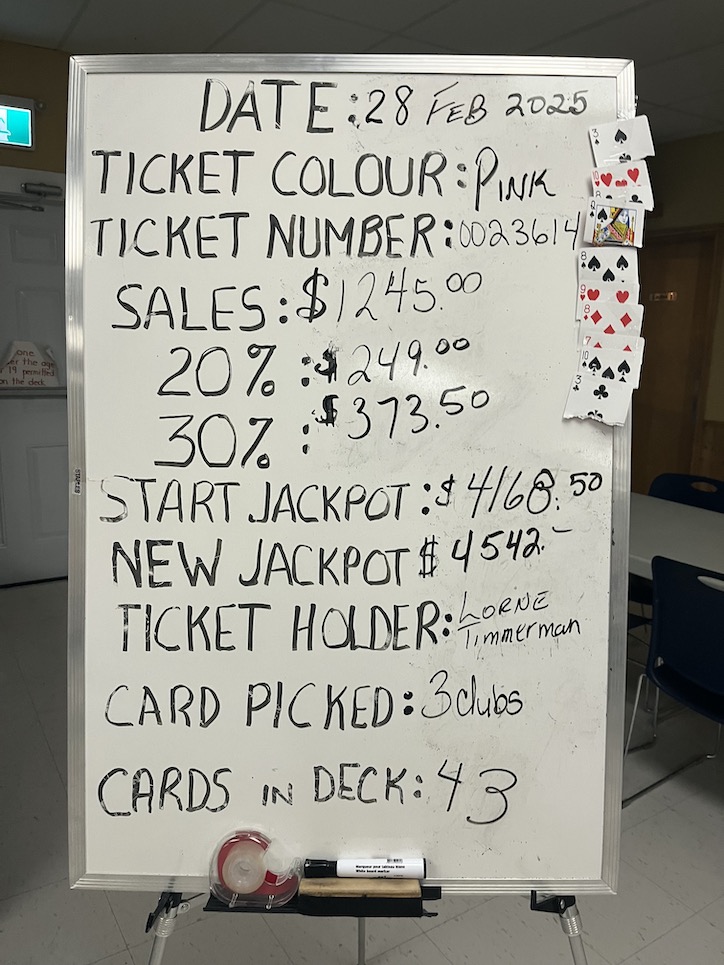 DATE: 28 FEB 2025
TICKET COLOUR: PINK
TICKET NUMBER: 0023614
SALES: $1245.00
20%: $249.00
30%: $373.50
START JACKPOT: $4168.50
NEW JACKPOT $4542.-
TICKET HOLDER: LORNE
Timmerman
CARD PICKED: 3 clubs
CARDS IN DECK: 43
3
10
8
9
8
7
10
3
19 permitted
on the deck
STAPLES
White board marker